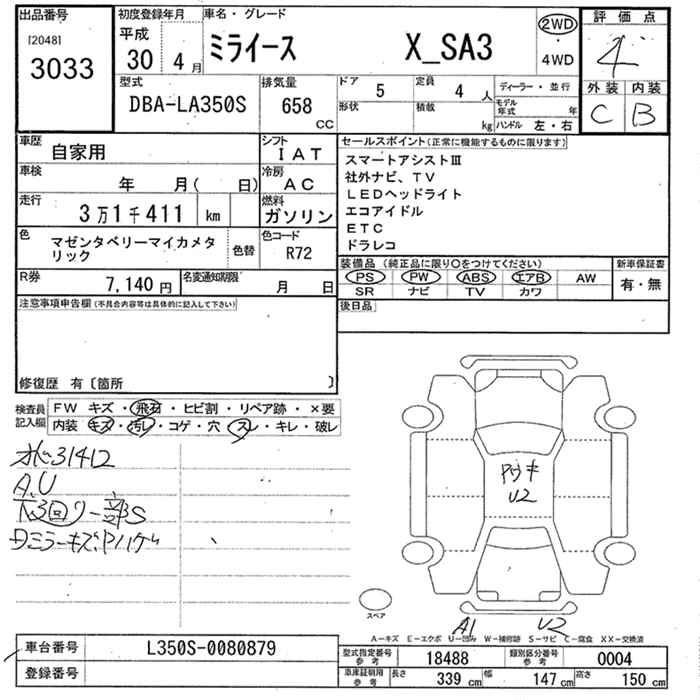 出品番号
[2048]
3033
初度登録年月
平成
30 4 月
車名・グレード
ミライース X_SA3
2WD
・
4WD
評価点
4
外装 内装
C B
型式
DBA-LA350S
排気量
658
CC
ドア
5
定員
4 人
形状
積載
kg
ディーラー・並行
モデル年式 年
ハンドル 左・右
車歴
自家用
シフト
IAT
車検
年 月( 日)
冷房
AC
走行
3万1千411 km
燃料
ガソリン
色
マゼンタベリーマイカメタリック
色替
色コード
R72
R券
7,140 円
名変通知期限
月 日
セールスポイント(正常に機能するものに限ります)
スマートアシストⅢ
社外ナビ、TV
LEDヘッドライト
エコアイドル
ETC
ドラレコ
装備品(純正品に限り○をつけてください)
PS PW ABS エアB AW
SR ナビ TV カワ
新車保証書
有・無
後日品
注意事項申告欄(不具合内容等は具体的に記入して下さい)
修復歴 有〔箇所 〕
検査員記入欄
FW キズ・飛石・ヒビ割・リペア跡・×要
内装 キズ・汚レ・コゲ・穴・スレ・キレ・破レ
31412
A,U
下3回り一部S
ミラーキズ
U2
スペア
A1 U2
A－キズ E－エクボ U－凹み W－補修跡 S－サビ C－腐食 XX－交換済
車台番号
L350S-0080879
登録番号
型式指定番号
参考
18488
類別区分番号
参考
0004
車庫証明用
参考
長さ 339 cm 幅 147 cm 高さ 150 cm